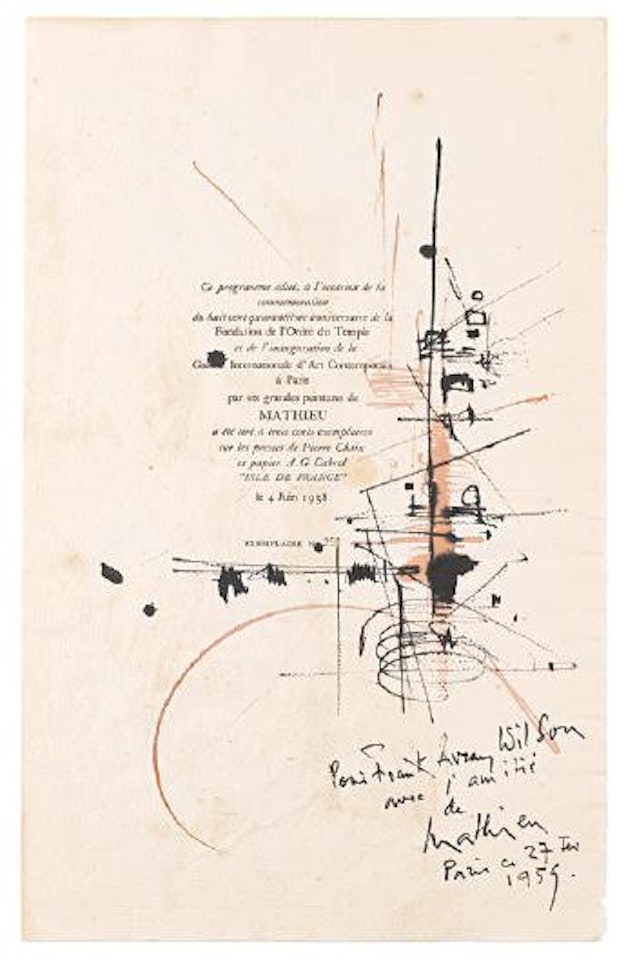 Ce programme édité, à l'occasion de la
commémoration
du huit cent quarantième anniversaire de la
Fondation de l'Ordre du Temple
et de l'inauguration de la
Galerie Internationale d'Art Contemporain
à Paris
par six grandes peintures de
MATHIEU
a été tiré à trois cents exemplaires
sur les presses de Pierre Chaix
et papier A. G.
"ISLE DE FRANCE"
le 4 Juin 1958
EXEMPLAIRE N°
Pour Frank Avray Wilson
avec l'amitié
de
Mathieu
Paris ce 27
1959.